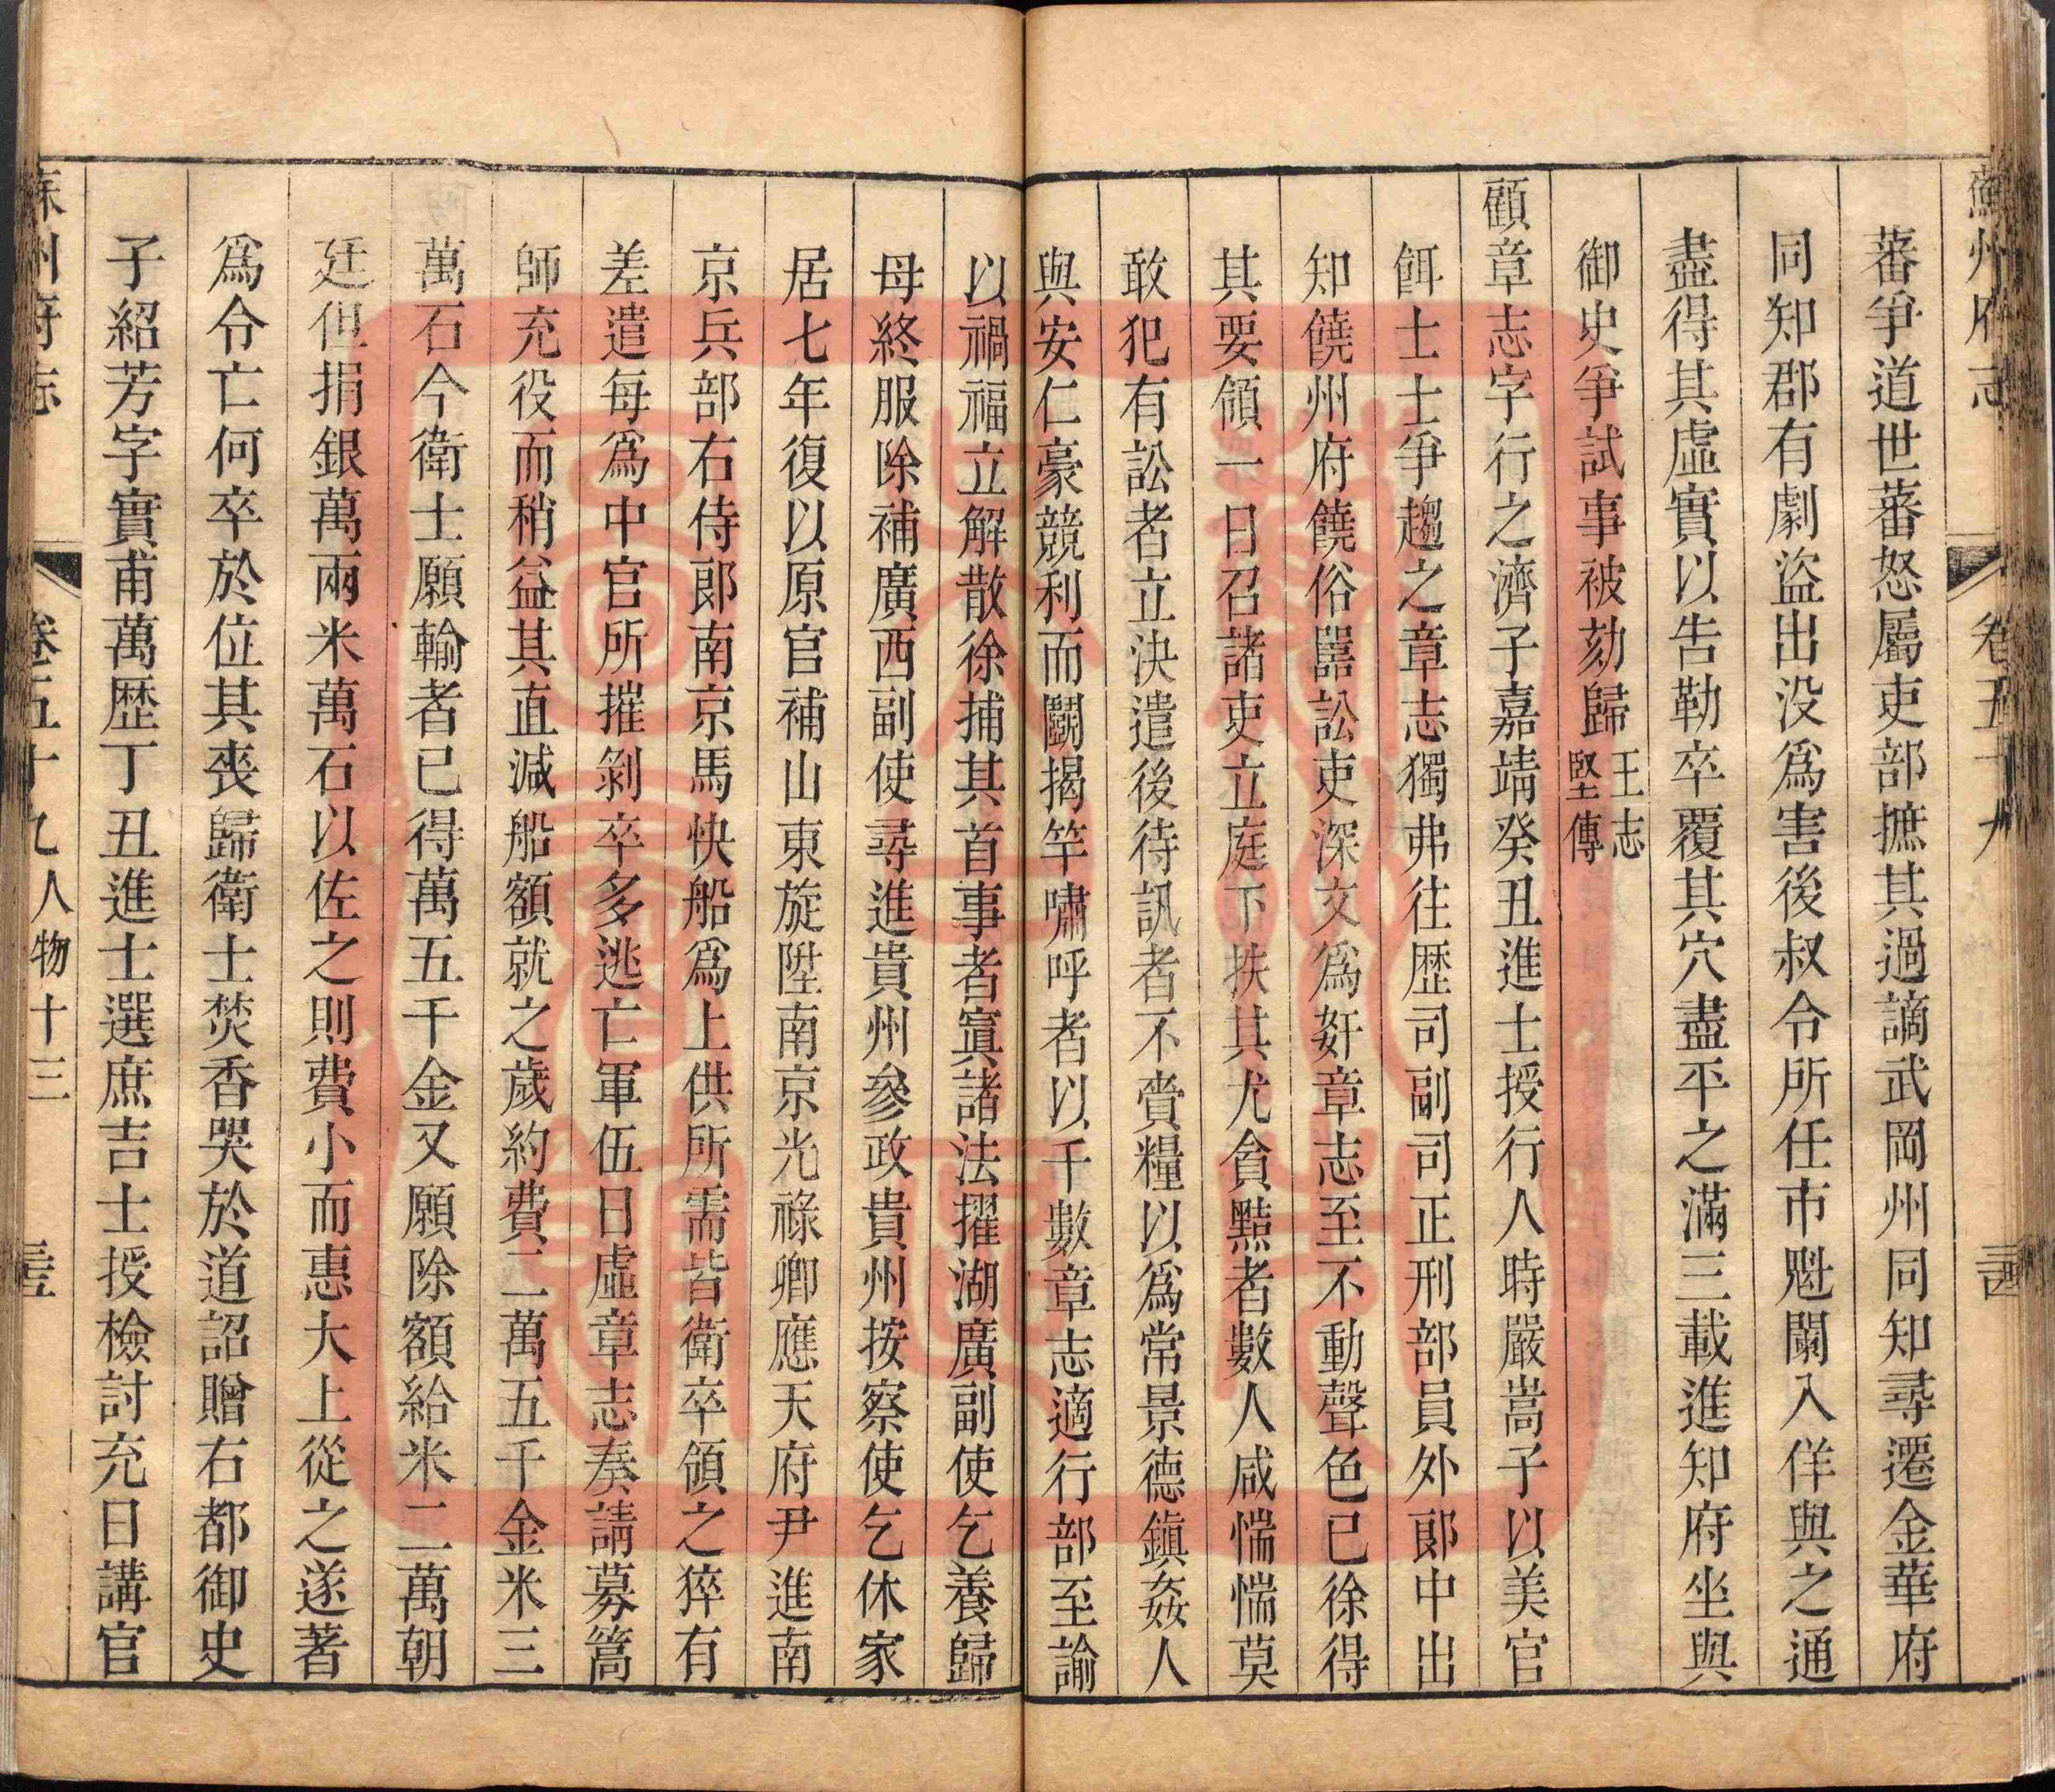 蘇州府志 卷五十九
蕃爭道世蕃怒屬吏部摭其過謫武岡州同知尋遷金華府
同知郡有劇盜出没爲害後叔令所任市魁闌入佯與之通
盡得其虛實以告勒卒覆其穴盡平之滿三載進知府坐與
御史爭試事被劾歸王志堅傳
顧章志字行之濟子嘉靖癸丑進士授行人時嚴嵩子以美官
餌士士爭趨之章志獨弗往歷司副司正刑部員外郎中出
知饒州府饒俗嚚訟吏深文爲奸章志至不動聲色已徐得
其要領一日召諸吏立庭下抶其尤貪黠者數人咸惴惴莫
敢犯有訟者立決遣後待訊者不賫糧以爲常景德鎭姦人
與安仁豪競利而鬬揭竿嘯呼者以千數章志適行部至諭
以禍福立解散徐捕其首事者寘諸法擢湖廣副使乞養歸
母終服除補廣西副使尋進貴州參政貴州按察使乞休家
居七年復以原官補山東旋陞南京光祿卿應天府尹進南
京兵部右侍郎南京馬快船爲上供所需皆衛卒領之猝有
差遣每爲中官所摧剝卒多逃亡軍伍日虛章志奏請募篙
師充役而稍益其直減船額就之歲約費二萬五千金米三
萬石今衛士願輸者已得萬五千金又願除額給米二萬朝
廷但捐銀萬兩米萬石以佐之則費小而惠大上從之遂著
爲令亡何卒於位其喪歸衛士焚香哭於道詔贈右都御史
子紹芳字實甫萬歷丁丑進士選庶吉士授檢討充日講官
州府志 卷五十九人物十三